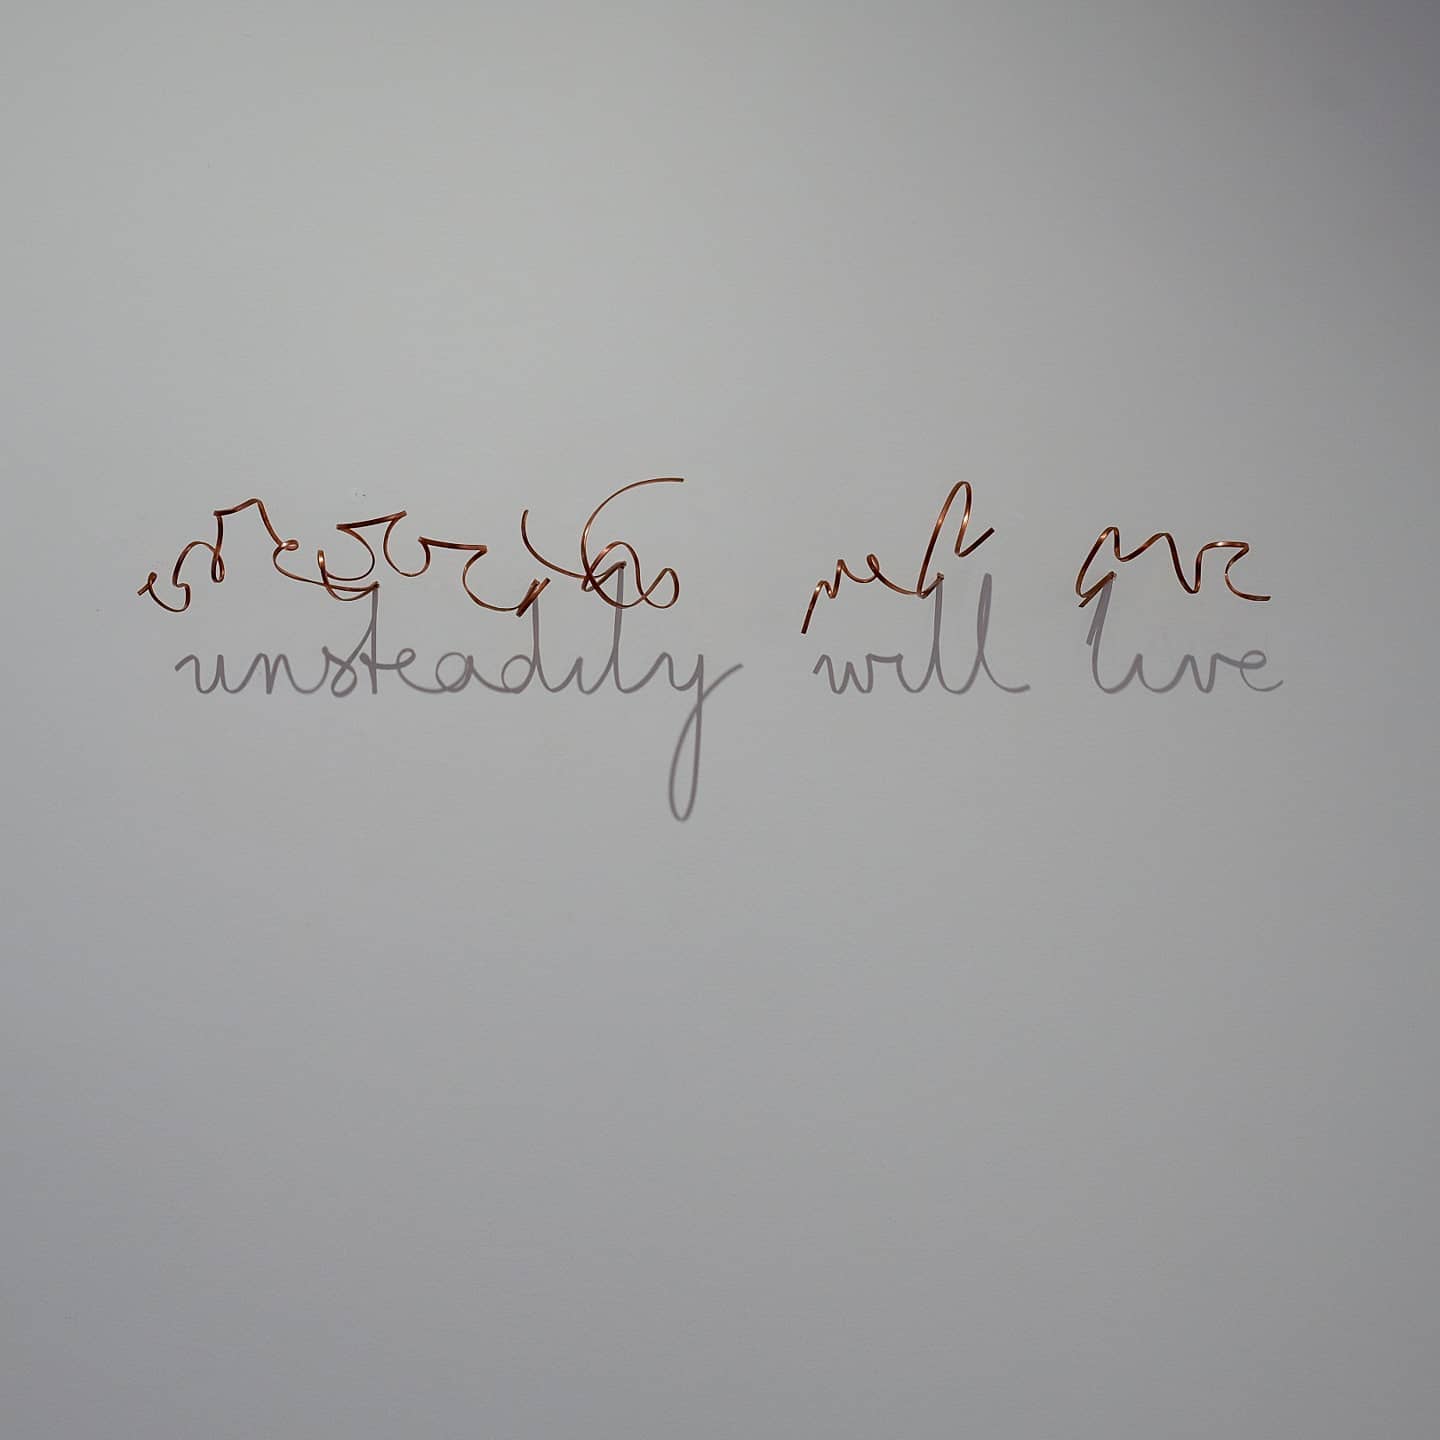 unsteadily will live